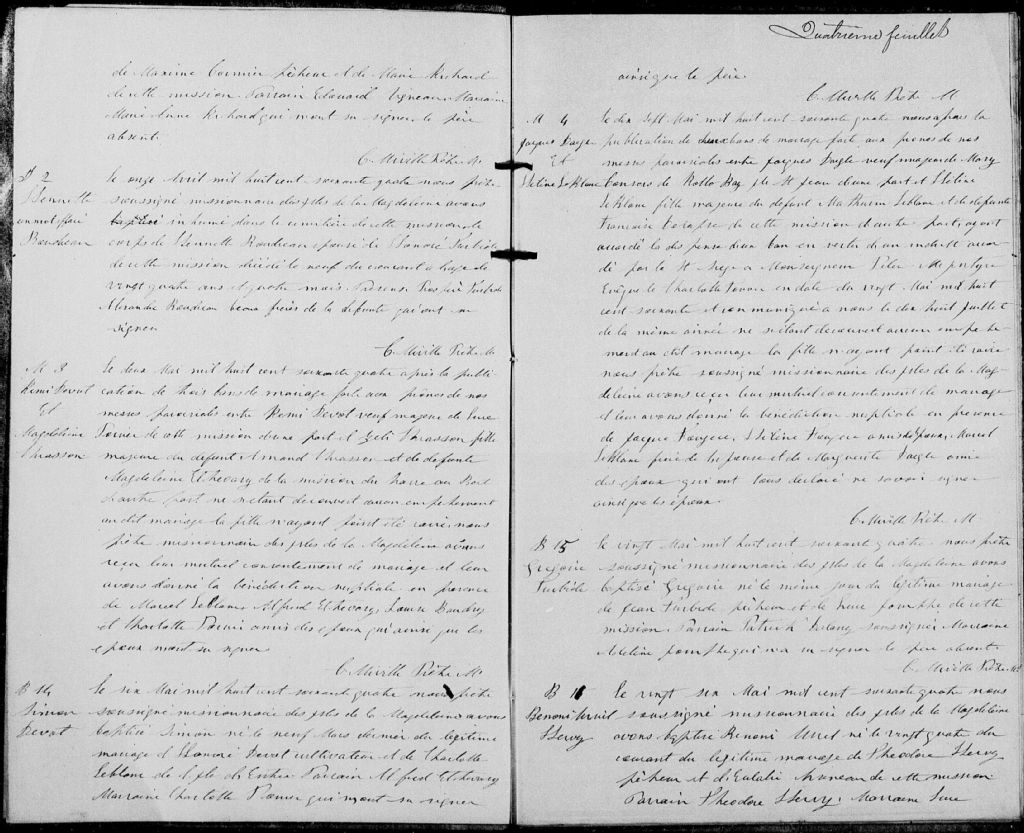 de Maxime Cormier pêcheur et de Marie Richard
de cette mission. Parrain Edouard Vigneau Marraine
Marie Anne Richard qui n'ont su signer le père
absent.
C. Miville Ptre M.
S 2
Hennette
Boudreau
Le onze Avril mil huit cent soixante quatre nous prêtre
soussigné missionnaire des Isles de la Magdeleine avons
inhumé dans le cimetière de cette mission le
corps de Hennette Boudreau épouse de Honoré Turbide
de cette mission décédé le neuf du courant à l'age de
vingt quatre ans et quatre mois. Présens Turbide
Boudreau beaux frères de la défunte qui ont su
signer
C. Miville Ptre M.
M 3
Remi Devot
Et
Magdeleine
Chiasson
Le deux Mai mil huit cent soixante quatre après la publi-
cation de trois bans de mariage faite aux prônes de nos
messes paroissiales entre Remi Devot veuf majeur de Luce
Poirier de cette mission d'une part et Chiasson fille
majeure du défunt Armand Chiasson et de défunte
Magdeleine Etchevary de la mission du havre au Ber
d'autre part ne s'étant découvert aucun empêchement
au dit mariage la fille n'ayant point été nous
prêtre missionnaire des Isles de la Magdeleine avons
reçu leur mutuel consentement de mariage et leur
avons donné la bénédiction nuptiale en présence
de Marcel Leblanc Alfred Etchevary, Boudrot
et Charlotte Poirier amis des époux qui ainsi que les
époux n'ont su signer
C. Miville Ptre M.
B 14
Simon
Devot
Le six Mai mil huit cent soixante quatre nous prêtre
soussigné missionnaire des Isles de la Magdeleine avons
baptisé Simon né le neuf Mars dernier du légitime
mariage d'Honoré Devot cultivateur et de Charlotte
Leblanc de l'Isle d'Entrée Parrain Alfred Etchevary
Marraine Charlotte Poirier qui n'ont su signer
Quatrième feuillet
ainsi que le père.
C. Miville Ptre M
M 4
Jacques Daigle
Et
Hélène Leblanc
Le dix sept Mai mil huit cent soixante quatre nous après la
publication de deux bans de mariage faite aux prônes de nos
messes paroissiales entre Jacques Daigle veuf majeur de Mary
Bay Isle St Jean d'une part et Hélène
Leblanc fille majeure du défunt Mathurin Leblanc et de défunte
Françoise de cette mission d'autre part, ayant
accordé la dispense d'un ban en vertu d'un indult accor-
dé par le St Siège à Monseigneur Peter McIntyre
Evêque de Charlotte Town en date du vingt Mai mil huit
cent soixante et communiqué à nous le dix huit Juillet
de la même année ne s'étant découvert aucun empêche-
ment au dit mariage la fille n'ayant point été
nous prêtre soussigné missionnaire des Isles de la Mag-
deleine avons reçu leur mutuel consentement de mariage
et leur avons donné la bénédiction nuptiale en présence
de Jacques Hélène amis de l'époux, Marcel
Leblanc frère de l'épouse et de Marguerite Daigle amie
des époux qui ont tous déclaré ne savoir signer
ainsi que les époux.
C. Miville Ptre M.
B 15
Grégoire
Turbide
Le vingt Mai mil huit cent soixante quatre nous prêtre
soussigné missionnaire des Isles de la Magdeleine avons
baptisé Grégoire né le même jour du légitime mariage
de Jean Turbide pêcheur et de Luce de cette
mission. Parrain Patrick soussigné Marraine
qui n'a su signer le père absent.
C. Miville Ptre M.
B 16
Benoni
Hervy
Le vingt six Mai mil cent soixante quatre nous
soussigné missionnaire des Isles de la Magdeleine
avons baptisé Benoni né le vingt quatre du
courant du légitime mariage de Théodore Hervy
pêcheur et d'Eulalie Arseneau de cette mission
Parrain Théodore Hervy. Marraine Luce